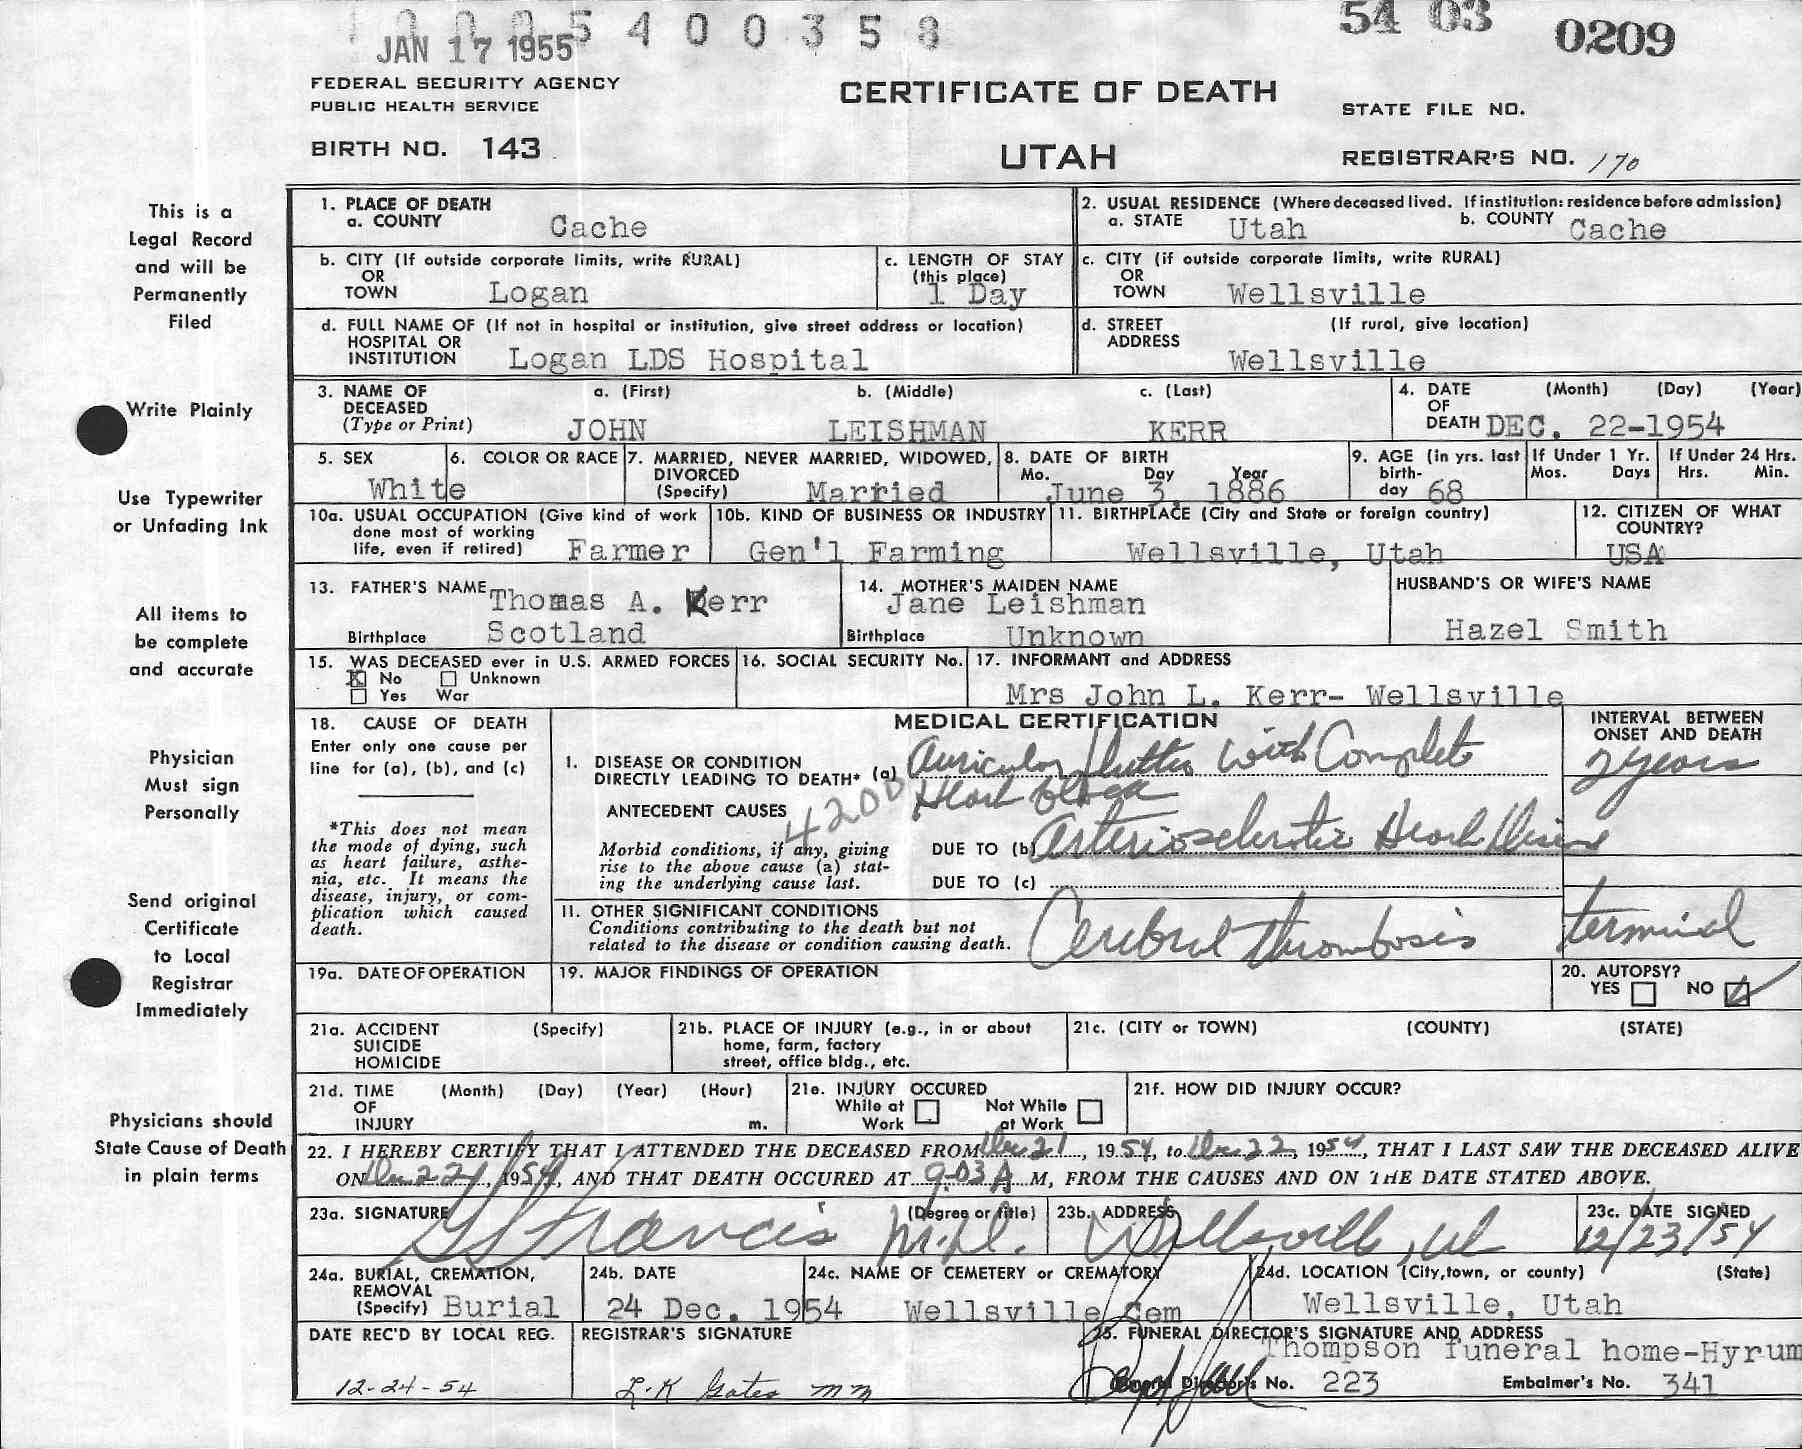 1003540035 8
54 03
0209
JAN 17 1955
FEDERAL SECURITY AGENCY
PUBLIC HEALTH SERVICE
CERTIFICATE OF DEATH
STATE FILE NO.
BIRTH NO. 143
UTAH
REGISTRAR'S NO. 170
This is a
Legal Record
and will be
Permanently
Filed
Write Plainly
Use Typewriter
or Unfading Ink
All items to
be complete
and accurate
Physician
Must sign
Personally
Send original
Certificate
to Local
Registrar
Immediately
Physicians should
State Cause of Death
in plain terms
1. PLACE OF DEATH
a. COUNTY Cache
2. USUAL RESIDENCE (Where deceased lived. If institution: residence before admission)
a. STATE Utah b. COUNTY Cache
b. CITY (If outside corporate limits, write RURAL)
OR
TOWN Logan
c. LENGTH OF STAY
(this place)
1 Day
c. CITY (if outside corporate limits, write RURAL)
OR
TOWN Wellsville
d. FULL NAME OF (If not in hospital or institution, give street address or location)
HOSPITAL OR
INSTITUTION Logan LDS Hospital
d. STREET (If rural, give location)
ADDRESS
Wellsville
3. NAME OF a. (First) b. (Middle) c. (Last)
DECEASED
(Type or Print) JOHN LEISHMAN KERR
4. DATE (Month) (Day) (Year)
OF
DEATH DEC. 22-1954
5. SEX
6. COLOR OR RACE
White
7. MARRIED, NEVER MARRIED, WIDOWED,
DIVORCED
(Specify) Married
8. DATE OF BIRTH
Mo. Day Year
June 3, 1886
9. AGE (in yrs. last
birth-
day 68
If Under 1 Yr.
Mos. Days
If Under 24 Hrs.
Hrs. Min.
10a. USUAL OCCUPATION (Give kind of work
done most of working
life, even if retired) Farmer
10b. KIND OF BUSINESS OR INDUSTRY
Gen'l Farming
11. BIRTHPLACE (City and State or foreign country)
Wellsville, Utah
12. CITIZEN OF WHAT
COUNTRY?
USA
13. FATHER'S NAME Thomas A. Kerr
Birthplace Scotland
14. MOTHER'S MAIDEN NAME
Jane Leishman
Birthplace Unknown
HUSBAND'S OR WIFE'S NAME
Hazel Smith
15. WAS DECEASED ever in U.S. ARMED FORCES
X No Unknown
Yes War
16. SOCIAL SECURITY No.
17. INFORMANT and ADDRESS
Mrs John L. Kerr- Wellsville
18. CAUSE OF DEATH
Enter only one cause per
line for (a), (b), and (c)
*This does not mean
the mode of dying, such
as heart failure, asthe-
nia, etc. It means the
disease, injury, or com-
plication which caused
death.
MEDICAL CERTIFICATION
INTERVAL BETWEEN
ONSET AND DEATH
I. DISEASE OR CONDITION
DIRECTLY LEADING TO DEATH* (a) Auricular flutter with Complete
Heart block
2 years
ANTECEDENT CAUSES
4200
Morbid conditions, if any, giving
rise to the above cause (a) stat-
ing the underlying cause last.
DUE TO (b) Arteriosclerotic Heart Disease
DUE TO (c)
II. OTHER SIGNIFICANT CONDITIONS
Conditions contributing to the death but not
related to the disease or condition causing death.
Cerebral Thrombosis
terminal
19a. DATE OF OPERATION
19. MAJOR FINDINGS OF OPERATION
20. AUTOPSY?
YES NO
21a. ACCIDENT (Specify)
SUICIDE
HOMICIDE
21b. PLACE OF INJURY (e.g., in or about
home, farm, factory
street, office bldg., etc.
21c. (CITY or TOWN) (COUNTY) (STATE)
21d. TIME (Month) (Day) (Year) (Hour)
OF
INJURY m.
21e. INJURY OCCURED
While at Not While
Work at Work
21f. HOW DID INJURY OCCUR?
22. I HEREBY CERTIFY THAT I ATTENDED THE DECEASED FROM Dec 21, 1954, to Dec 22, 1954, THAT I LAST SAW THE DECEASED ALIVE
ON Dec 22, 1954, AND THAT DEATH OCCURED AT 9-03 A M, FROM THE CAUSES AND ON THE DATE STATED ABOVE.
23a. SIGNATURE (Degree or title)
Francis M.D.
23b. ADDRESS
Wellsville, Ut
23c. DATE SIGNED
12/23/54
24a. BURIAL, CREMATION,
REMOVAL
(Specify) Burial
24b. DATE
24 Dec. 1954
24c. NAME OF CEMETERY or CREMATORY
Wellsville Cem
24d. LOCATION (City, town, or county) (State)
Wellsville, Utah
DATE REC'D BY LOCAL REG.
12-24-54
REGISTRAR'S SIGNATURE
25. FUNERAL DIRECTOR'S SIGNATURE AND ADDRESS
Thompson funeral home-Hyrum
Funeral Director's No. 223 Embalmer's No. 341